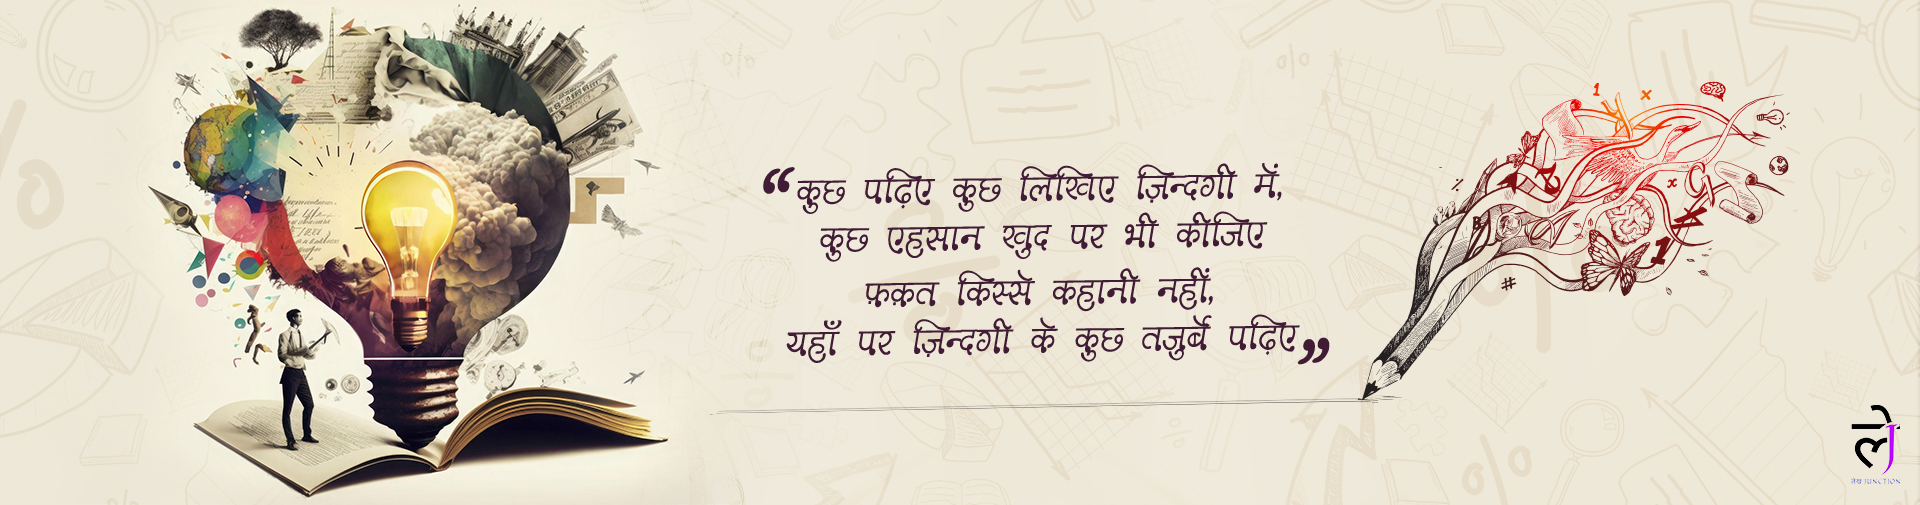 “कुछ पढ़िए कुछ लिखिए ज़िन्दगी में,
कुछ एहसान खुद पर भी कीजिए
फ़क़त किस्से कहानी नहीं,
यहाँ पर ज़िन्दगी के कुछ तजुर्बे पढ़िए”
लेJ
लेख JUNCTION